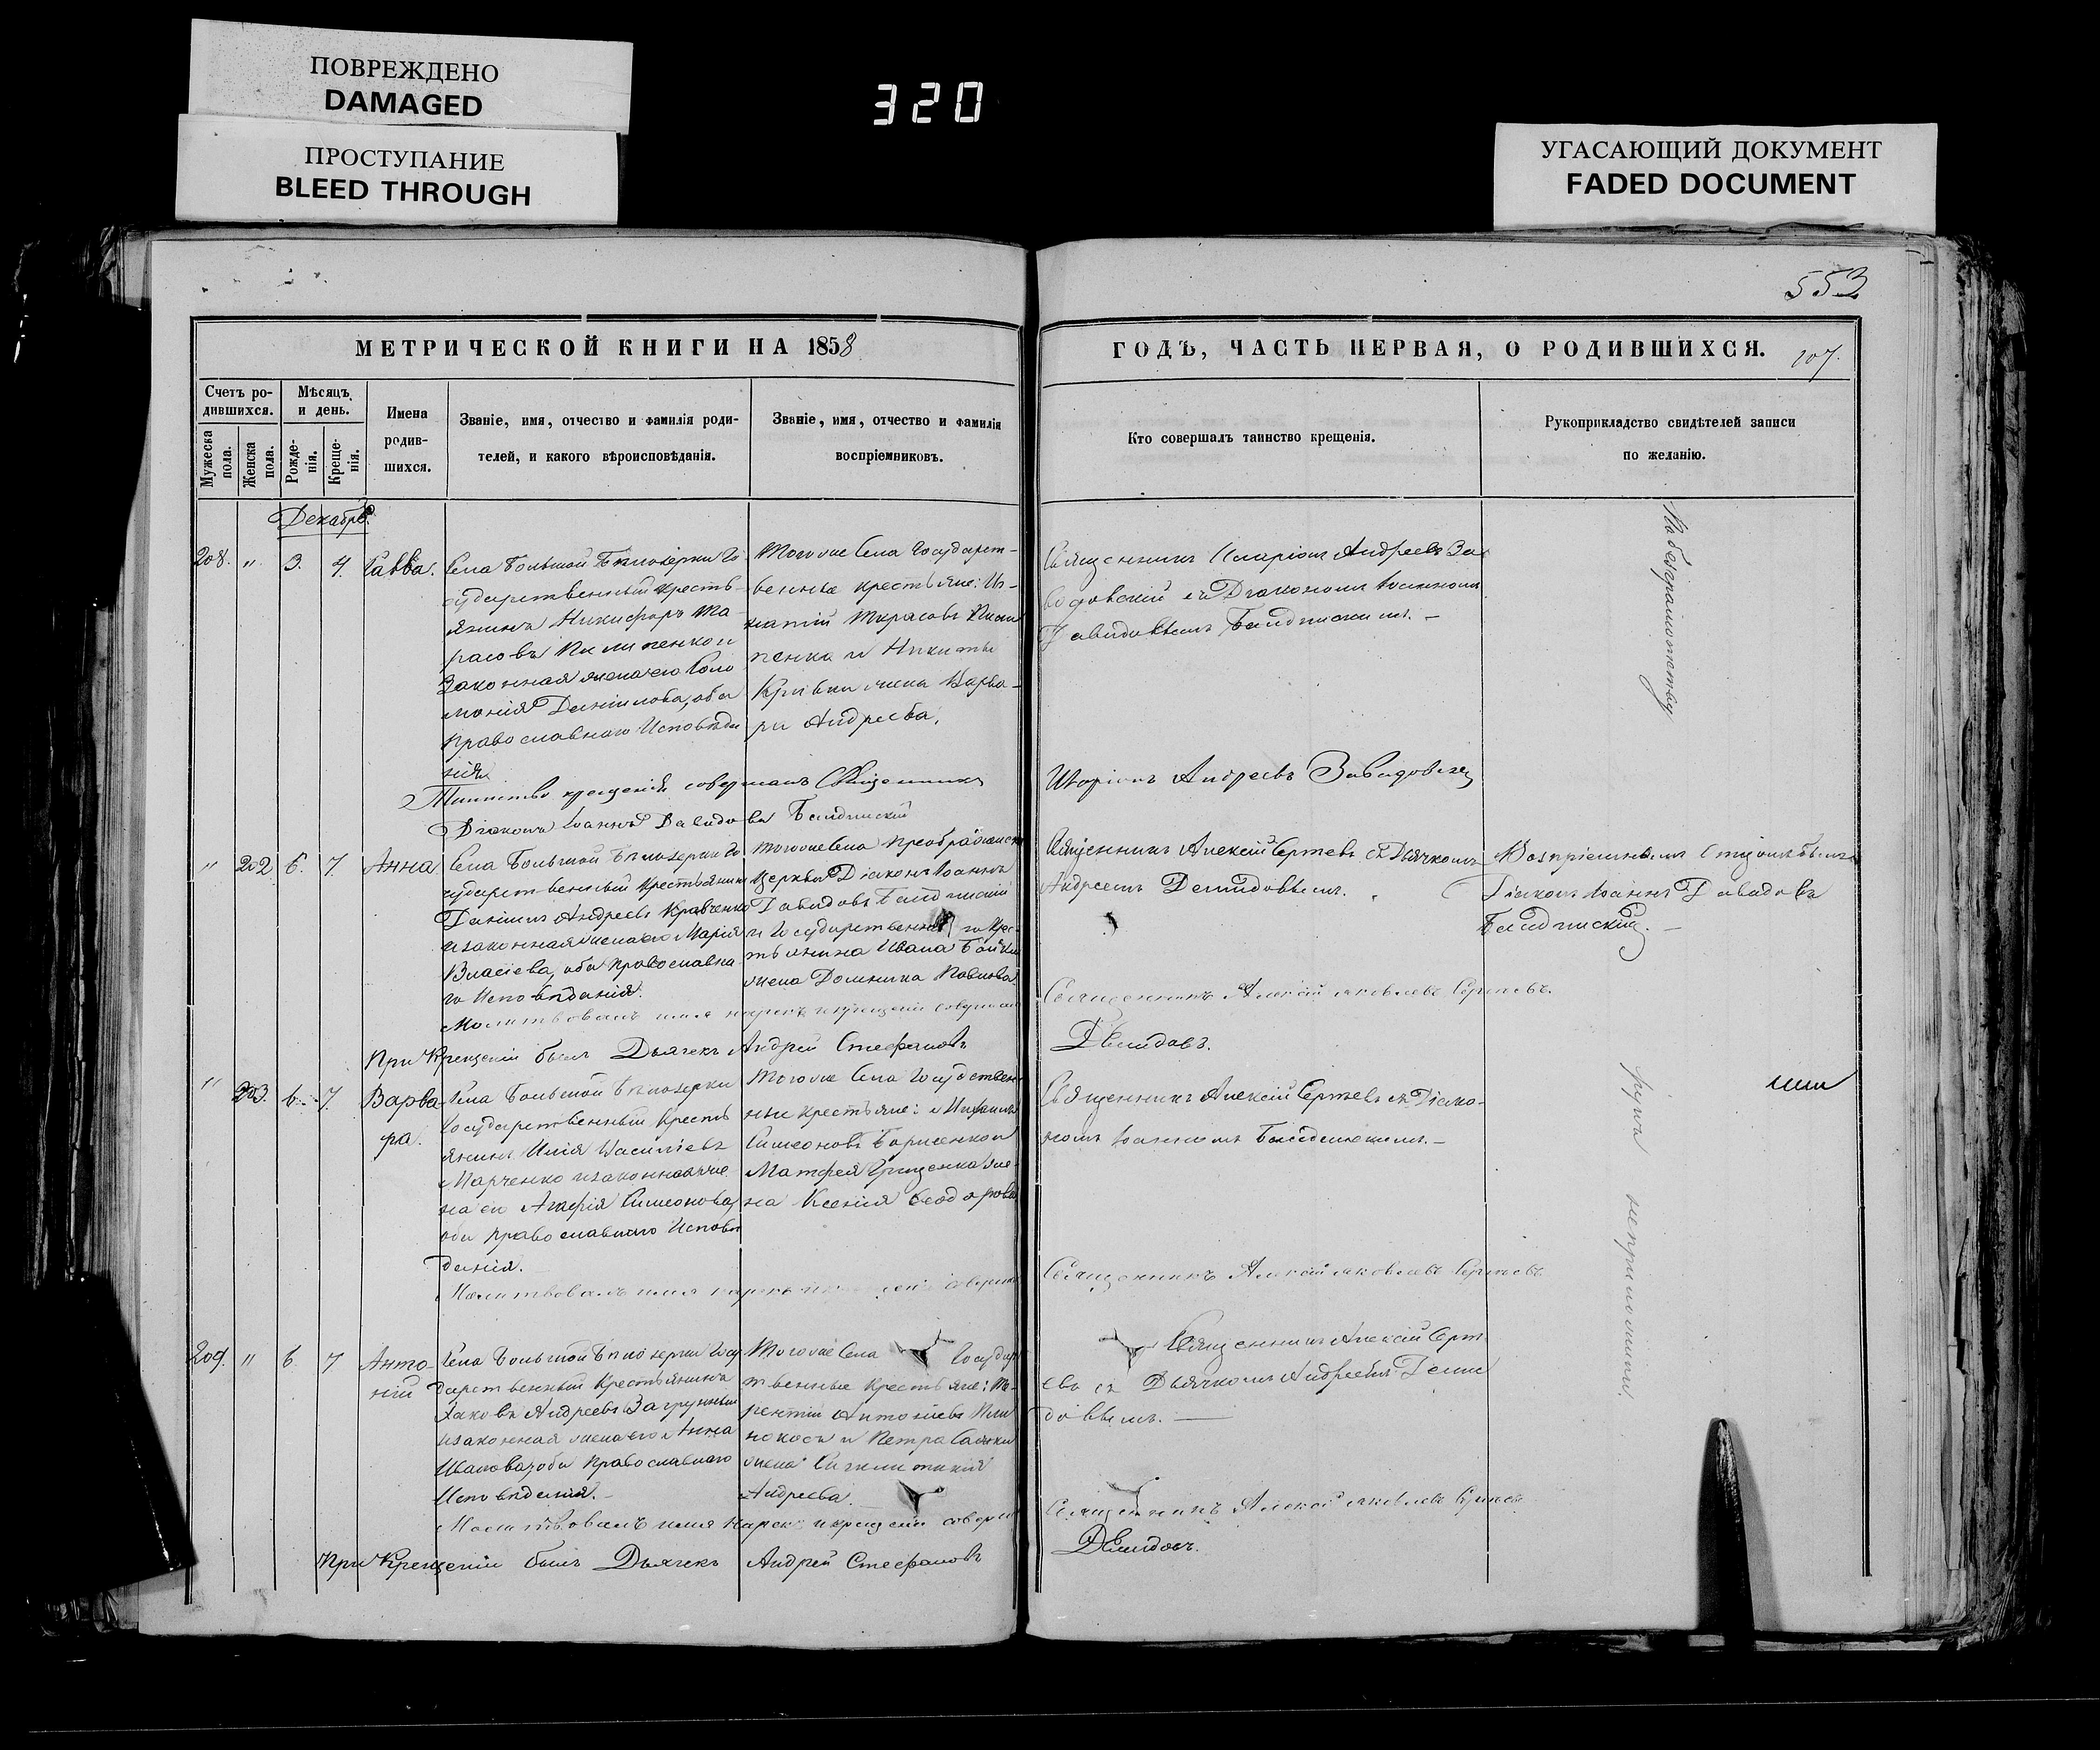 ПОВРЕЖДЕНО
DAMAGED
ПРОСТУПАНИЕ
BLEED THROUGH
320
УГАСАЮЩИЙ ДОКУМЕНТ
FADED DOCUMENT
553
МЕТРИЧЕСКОЙ КНИГИ НА 1858
ГОДЪ, ЧАСТЬ ПЕРВАЯ, О РОДИВШИХСЯ.
107.
Счетъ ро-
дившихся.
Мужеска
пола.
Женска
пола.
Мѣсяцъ
и день.
Рожде-
нія.
Креще-
нія.
Имена
родив-
шихся.
Званіе, имя, отчество и фамилія роди-
телей, и какого вѣроисповѣданія.
Званіе, имя, отчество и фамилія
воспріемниковъ.
Кто совершалъ таинство крещенія.
Рукоприкладство свидѣтелей записи
по желанію.
Декабрь.
208. " 3. 4. Савва.
Села Большой Бѣлозерки Го
сударственный кресть-
янинъ Никифоръ Та-
расовъ Пилипенко и
Законная жена его Соло
монія Даніилова, оба
православнаго Исповѣда
нія.
Тогоже Села Государст-
венные крестьяне: Иг-
натій Тарасовъ Пили
пенко и Никиты
Кривки жена Варва-
ра Андреева.
Священникъ Иларіонъ Андреевъ За
вадовскій съ Діакономъ Іоанномъ
Давидовымъ
По безграмотству
Таинство крещенія совершалъ Священникъ
Иларіонъ Андреевъ Завадовскій
Діаконъ Іоаннъ Давидовъ
" 202 6. 7. Анна
Села Большой Бѣлозерки Го
сударственный Крестьянинъ
Даніилъ Андреевъ Кравченко
и законная жена его Марія
Власіева, оба православна
го Исповѣданія.
Тогоже Села Преображенск
Церкви Діаконъ Іоаннъ
Давидовъ
и Государственнаго Крес-
тьянина Ивана Бойки
жена Домника Павлова.
Священникъ Алексій Сергѣевъ съ Дьячкомъ
Андреемъ Демидовымъ.
Діаконъ Іоаннъ Давидовъ
Молитвовалъ имя нарекъ и крещеніе соверши
Священникъ Алексій Яковлевъ Сергѣевъ.
При Крещеніи былъ Дьячекъ Андрей Стефановъ
Демидовъ.
" 203. 6. 7. Варва-
ра.
Села Большой Бѣлозерки
Государственный Кресть
янинъ Илія Василіевъ
Марченко и законная же
на его Агафія Симеонова,
оба православнаго Исповѣ
данія.
Тогоже Села Государствен-
ные крестьяне: Михаилъ
Симеоновъ Борисенко и
Матфея Грищенка же-
на Ксенія Феодорова
Священникъ Алексій Сергѣевъ съ Діако-
номъ Іоанномъ
рукъ неприложили.
Молитвовалъ имя нарекъ
Священникъ Алексій Яковлевъ Сергѣевъ
209. " 6. 7 Анто-
ній
Села Большой Бѣлозерки Госу
дарственный Крестьянинъ
Іаковъ Андреевъ Загрунный
и законная жена его Анна
Иванова, оба Православнаго
Исповѣданія.
Тогоже Села Государ
твенные Крестьяне: Те-
рентій Антоніевъ
и Петра
жена
Андреева.
Священникъ Алексій Серг
евъ съ Дьячкомъ Андреемъ Деми
довымъ.
Молитвовалъ имя нарекъ и крещеніе соверши
Священникъ Алексій Яковлевъ Сергѣевъ
При Крещеніи былъ Дьячекъ Андрей Стефановъ
Демидовъ.